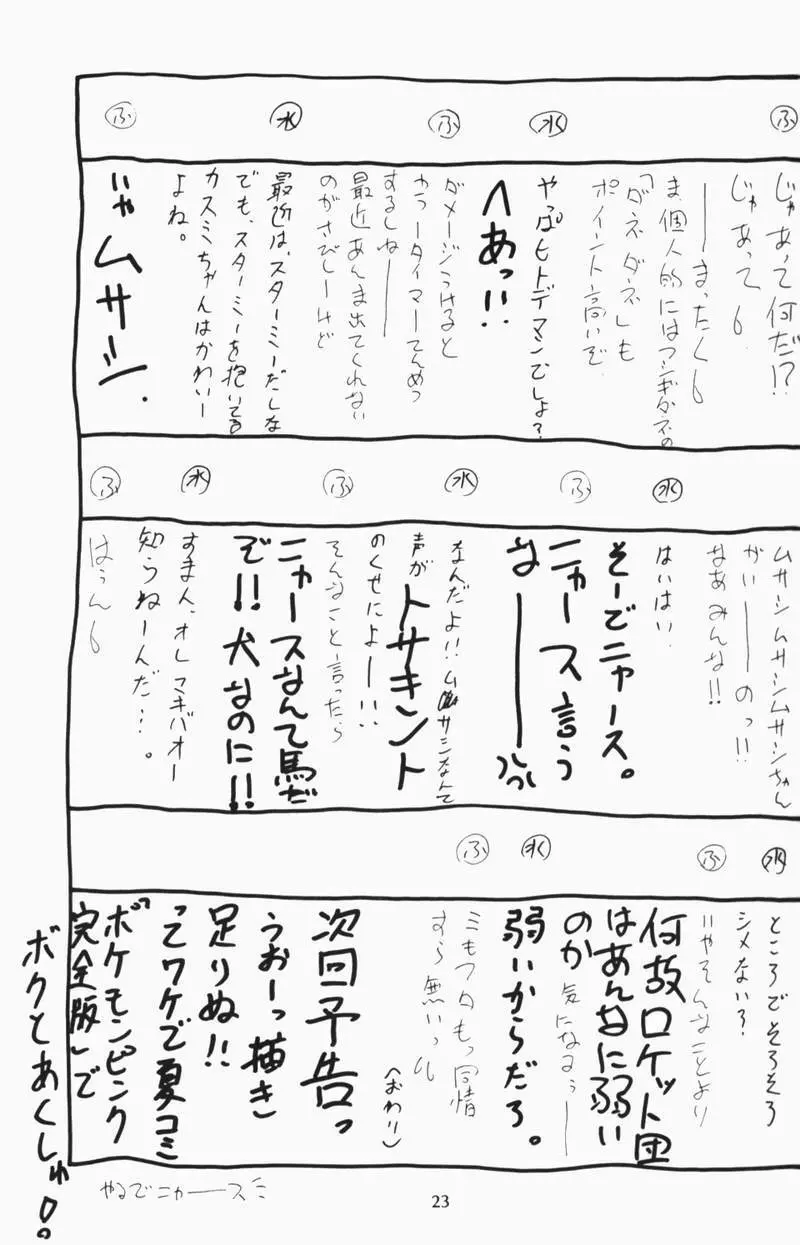 ふ
じゃあって何だ!?
じゃあって。
――まったくも
ま、個人的にはフシギダネの
「ダネダネ」も
ポイント高いぞ。
水
やっぱヒトデマンでしょ?
ヘあっ!!
ふ
ダメージうけると
カラータイマーてんめつ
するしね――
最近あんま出てくれない
のがさびしーけど
水
最近は、スターミーだしな
でも、スターミーを抱いてる
カスミちゃんはかわいー
よね。
ふ
いや ムサシ.
ムサシムサシムサシちゃん
がいーーのっ!!
なあみんな!!
水
はいはい
ふ
そーでニャース。
ニャース言う
なーー
水
なんだよ!!ムサシなんて
声がトサキント
のくせによー!!
ふ
そんなこと言ったら
ニャースなんて馬だ
ぞ!!犬なのに!!
水
すまん、オレマキバオー
知らねーんだ…。
ふ
はうん
水
ところでそろそろ
シメない?
ふ
いやそんなことより
何故ロケット団
はあんなに弱い
のか気になるぅ――
水
弱いからだろ。
ふ
ミもフタもっ同情
すら無いっ
(おわり)
次回予告っ
うおーっ描き
足りぬ!!
ってワケで夏コミ
「ポケモンピンク
完全版」で
ボクとあくしゅ!
やるでニャースミ
23